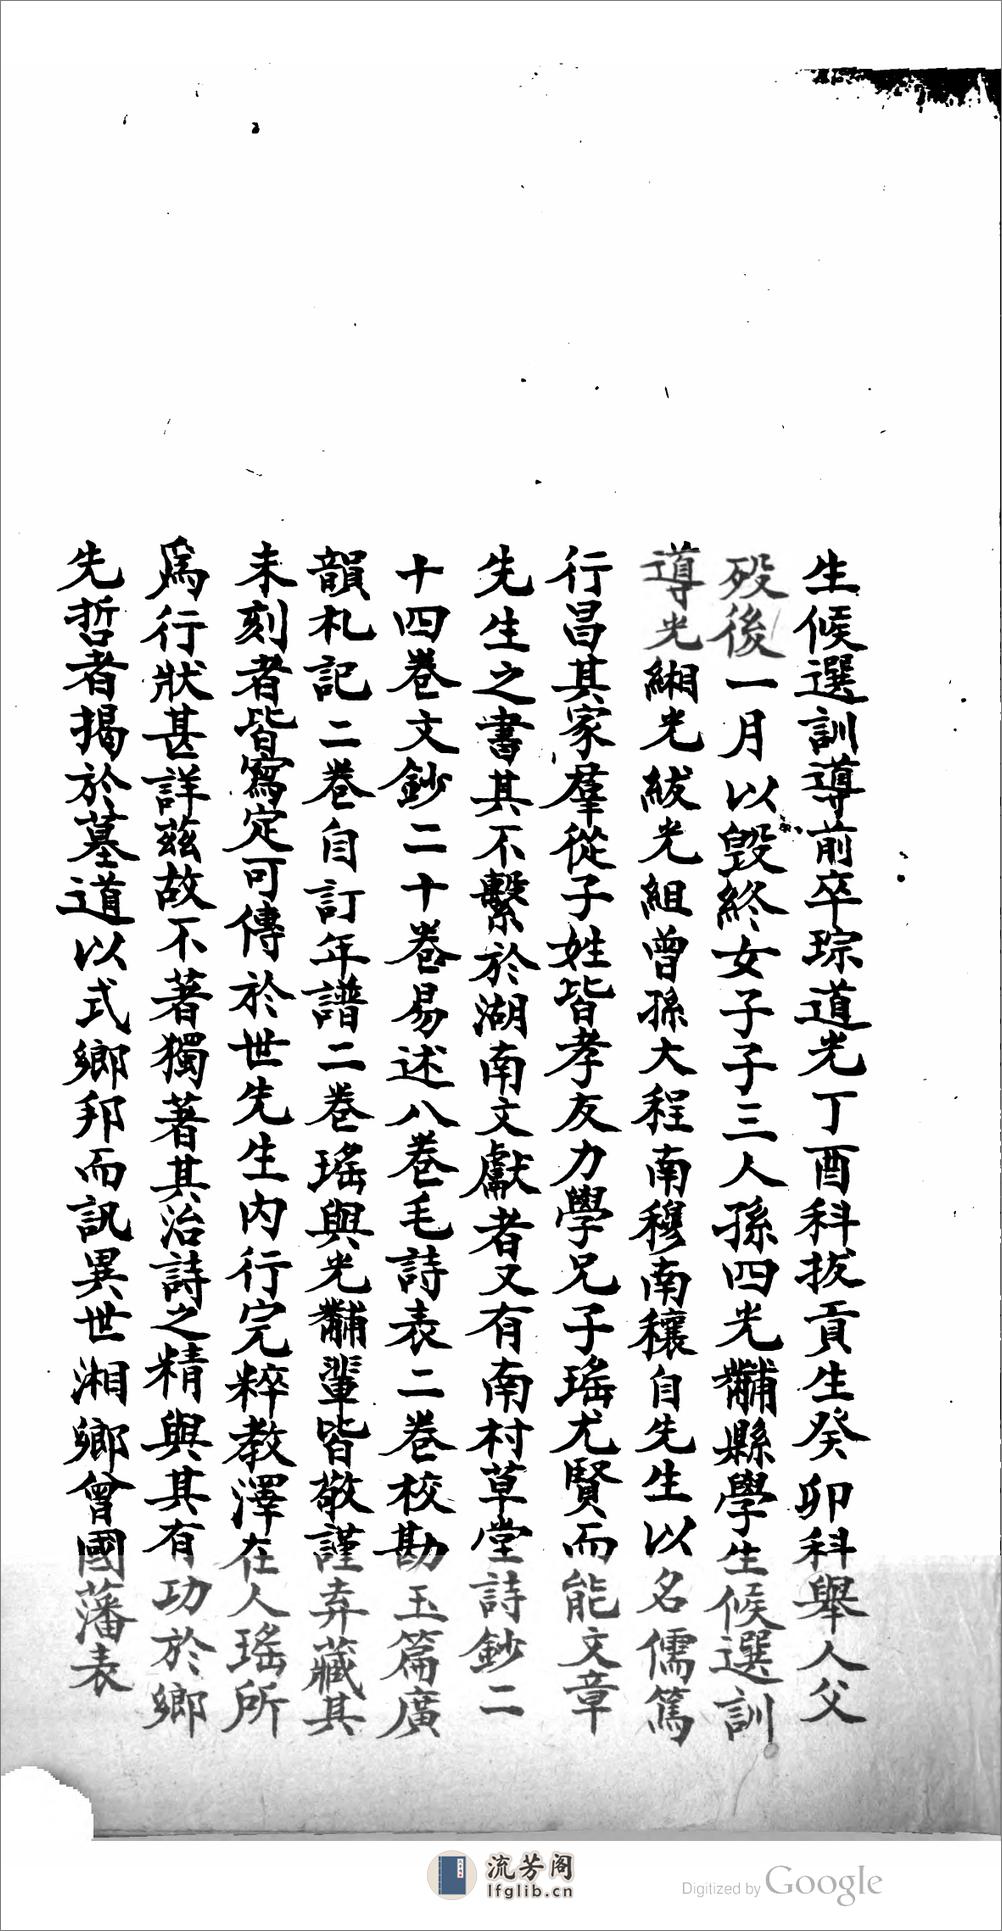 生候選訓導前卒琮道光丁酉科拔貢生癸卯科舉人父
歿後一月以毀終女子子三人孫四光黼縣學生候選訓
導光緗光紱光組曾孫大程南穆南穰自先生以名儒篤
行昌其家羣從子姓皆孝友力學兄子瑤尤賢而能文章
先生之書其不繫於湖南文獻者又有南村草堂詩鈔二
十四卷文鈔二十卷易述八卷毛詩表二卷校勘玉篇廣
韻札記二卷自訂年譜二卷瑤與光黼輩皆敬謹弆藏其
未刻者皆寫定可傳於世先生內行完粹教澤在人瑤所
爲行狀甚詳茲故不著獨著其治詩之精與其有功於鄉
先哲者揭於墓道以式鄉邦而訊異世湘鄉曾國藩表
流芳阁
lfglib.cn
Digitized by Google